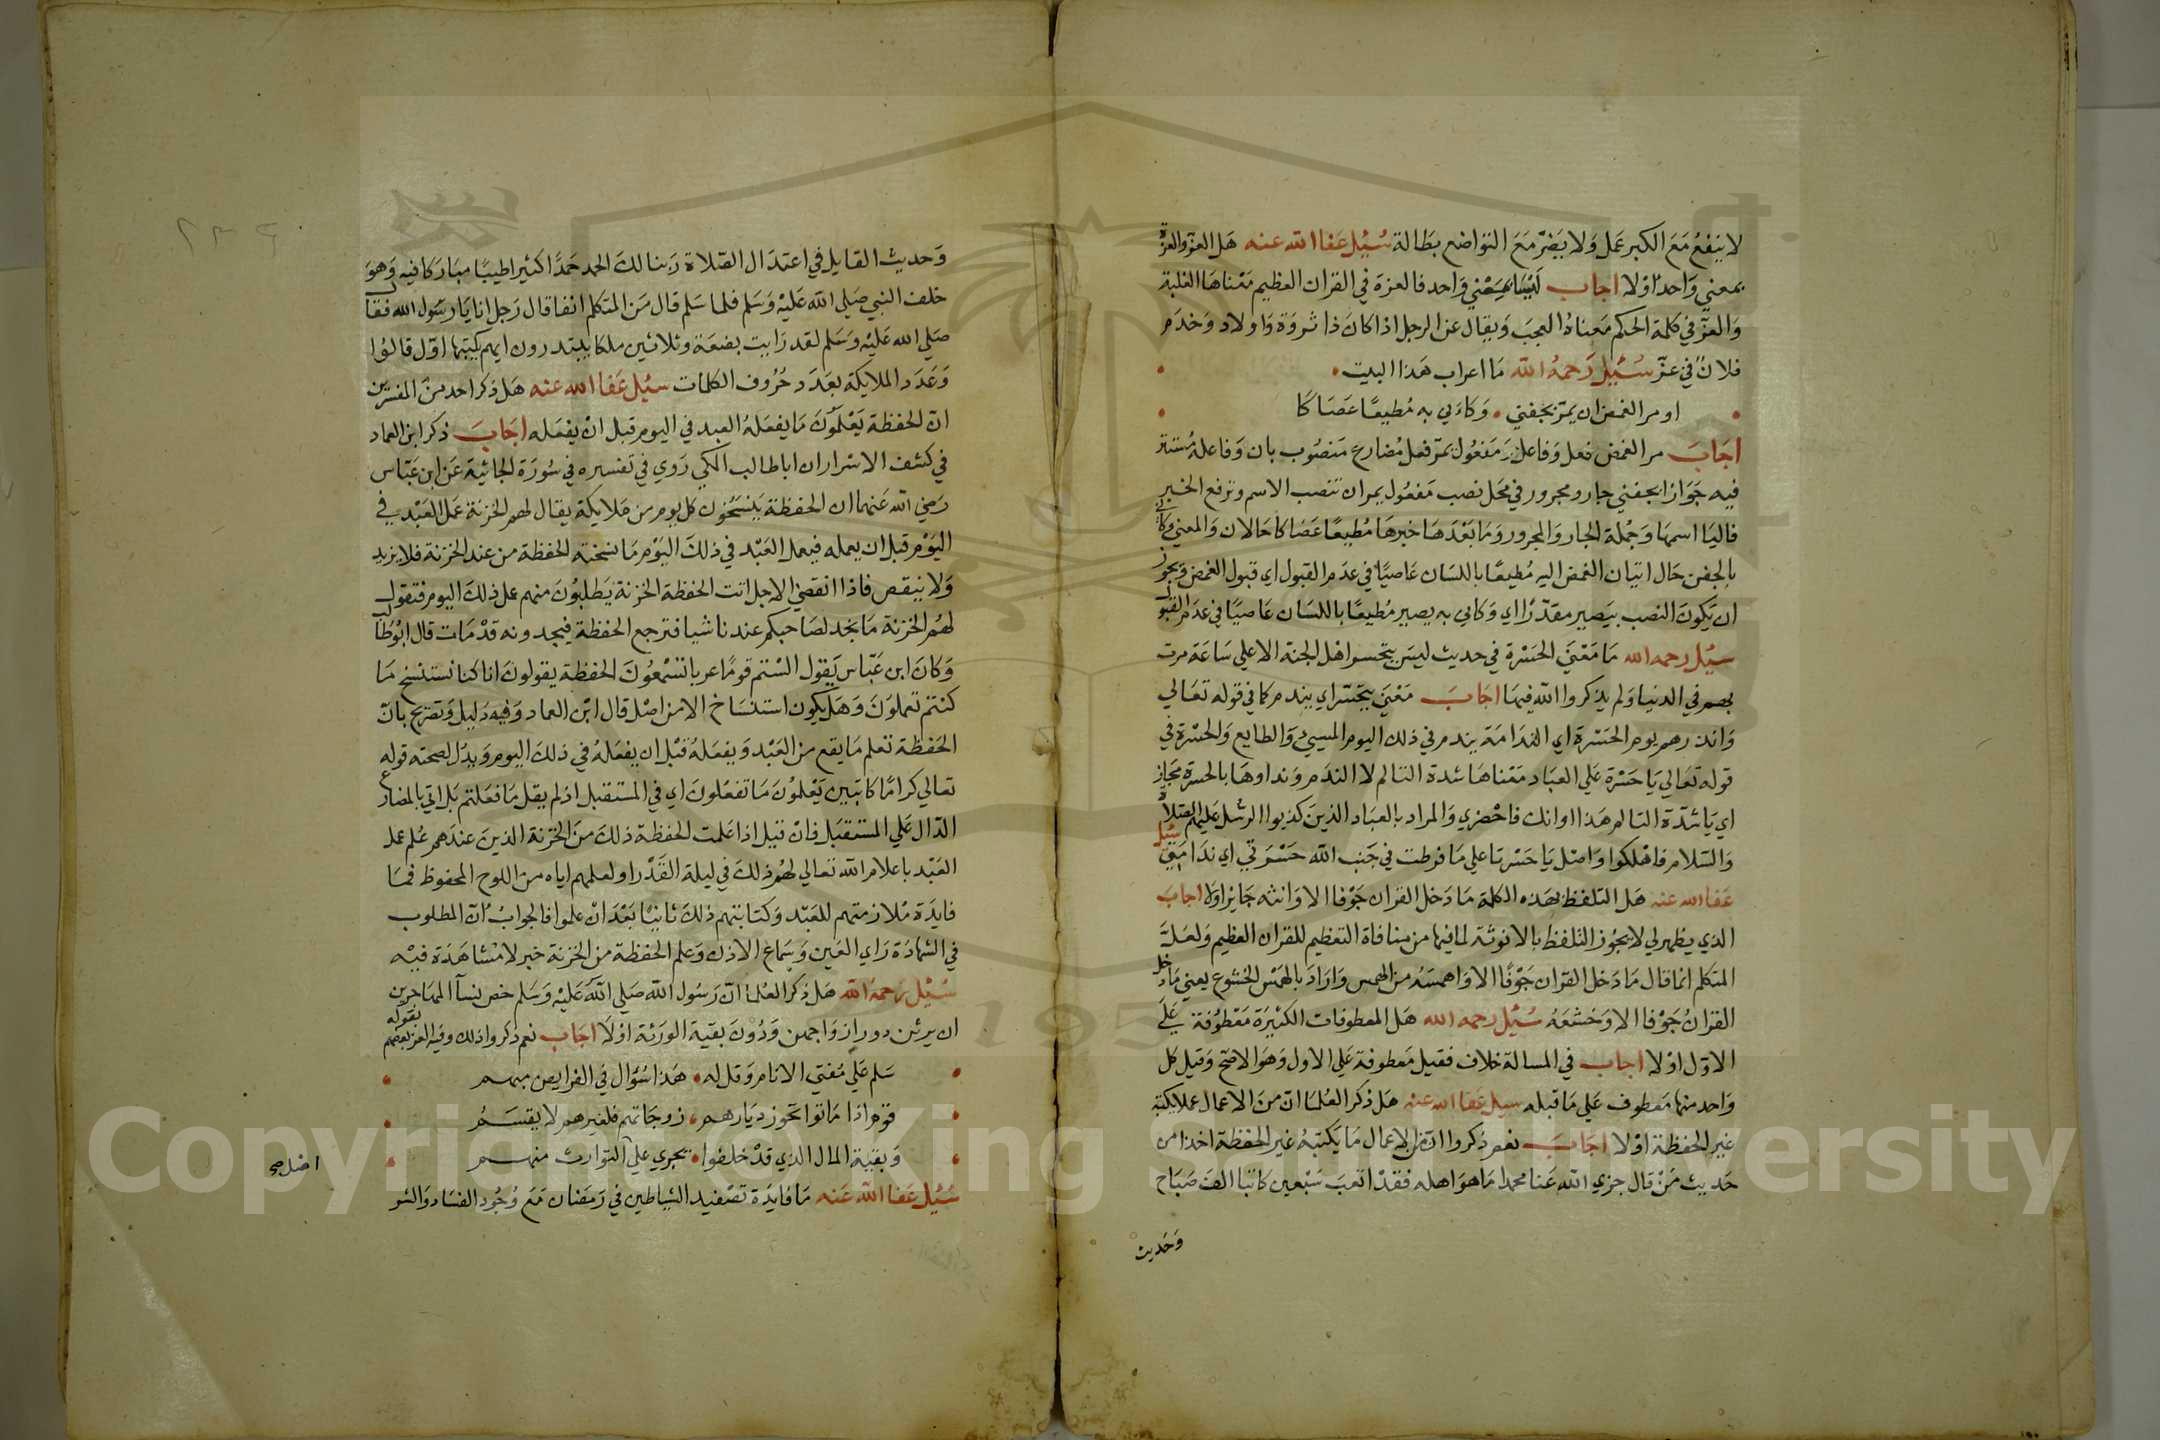 لا ينفع مع الكبر عمل ولا يضر مع التواضع بطالة سئيل عفا الله عنه هل العز والعزة
بمعني واحد اولا اجاب ليسا بمعني واحد فالعزة في القران العظيم معناها الغلبة
والعز في كلمة الحكم معناه العجب ويقال عز الرجل اذا كان ذا ثروة واولاد وخدم
فلان في عز سئيل رحمه الله ما اعراب هذا البيت
او مر الغمض ان يمر بجفني وكاني به مطيعا عصاكا
اجاب مر الغمض فعل وفاعل ومفعول يمر فعل مضارع منصوب بان وفاعله مستتر
فيه جوازا بجفني جار ومجرور في محل نصب مفعول يمر ان تنصب الاسم وترفع الخبر
فاليا اسمها وجملة الجار والمجرور وما بعدها خبرها مطيعا عصاكا حالان والمعني وكاني
بالجفن حال اتيان الغمض اليه مطيعا باللسان عاصيا في عدم القبول اي قبول الغمض ويجوز
ان يكون النصب بيصير مقدرا اي وكاني به يصير مطيعا باللسان عاصيا في عدم القبول
سيل رحمه الله ما معني الحسرة في حديث ليس يتحسر اهل الجنة الا علي ساعة مرت
بهم في الدنيا ولم يذكروا الله فيها اجاب معني يتحسر اي يندم كما في قوله تعالي
وانذرهم يوم الحسرة اي الندامة يندم في ذلك اليوم المسيئ والطايع والحسرة في
قوله تعالي يا حسرة علي العباد معناها شدة التالم لا الندم ونداوها بالحسرة مجاز
اي يا شدة التالم هذا اوانك فاحضري والمراد بالعباد الذين كذبوا الرسل عليهم الصلاة
والسلام فاهلكوا واصل يا حسرتا علي ما فرطت في جنب الله حسرتي اي ندامتي سئيل
عفا الله عنه هل التلفظ بهذه الكلمة ما دخل القران جوفا الا وانثه جايز اولا اجاب
الذي يظهر لي لا يجوز التلفظ بالانوثة لما فيها من منافاة التعظيم للقران العظيم ولعلة
المتكلم انما قال ما دخل القران جوفا الا واهمسه من الهمس واراد بالهمس الخشوع يعني ما دخل
القران جوفا الا وخشعه سئيل رحمه الله هل المعطوفات الكثيرة معطوفة علي
الاول اولا اجاب في المسالة خلاف فقيل معطوفة علي الاول وهو الاصح وقيل كل
واحد منها معطوف علي ما قبله سيل عفا الله عنه هل ذكر العلما ان من الاعمال عملا يكتبه
غير الحفظة اولا اجاب نعم ذكروا ان من الاعمال ما يكتبه غير الحفظة اخذا من
حديث من قال جزي الله عنا محمدا ما هو اهله فقد اتعب سبعين كاتبا الف صباح
وحديث
وحديث القايل في اعتدال الصلاة ربنا لك الحمد حمدا كثيرا طيبا مباركا فيه وهو
خلف النبي صلي الله عليه وسلم فلما سلم قال من المتكلم انفا قال رجل انا يا رسول الله فقال
صلي الله عليه وسلم لقد رايت بضعة وثلاثين ملكا يبتدرون ايهم يكتبها اول قالوا
وعدد الملايكة بعدد حروف الكلمات سئيل عفا الله عنه هل ذكر احد من المفسرين
ان الحفظة يعلمون ما يفعله العبد في اليوم قبل ان يفعله اجاب ذكر ابن العماد
في كشف الاسرار ان ابا طالب المكي روي في تفسيره في سورة الجاثية عن ابن عباس
رضي الله عنهما ان الحفظة ينسخون كل يوم من ملايكة يقال لهم الخزنة عمل العبد في
اليوم قبل ان يعمله فيعمل العبد في ذلك اليوم ما نسخته الحفظة من عند الخزنة فلا يزيد
ولا ينقص فاذا انقضي الاجل اتت الحفظة الخزنة يطلبون منهم عمل ذلك اليوم فتقول
لهم الخزنة ما نجد لصاحبكم عندنا شيا فترجع الحفظة فيجدونه قد مات قال ابو طالب
وكان ابن عباس يقول الستم قوما عربا تسمعون الحفظة يقولون انا كنا نستنسخ ما
كنتم تعملون وهل يكون استنساخ الا من اصل قال ابن العماد وفيه دليل وتصريح بان
الحفظة تعلم ما يقع من العبد ويفعله قبل ان يفعله في ذلك اليوم ويدل لصحته قوله
تعالي كراما كاتبين يعلمون ما تفعلون اي في المستقبل اذ لم يقل ما فعلتم بل اتي بالمضارع
الدال علي المستقبل فان قيل اذا علمت الحفظة ذلك من الخزنة الذين عندهم علم عمل
العبد باعلام الله تعالي لهم ذلك في ليلة القدر او لعلمهم اياه من اللوح المحفوظ فما
فايدة ملازمتهم للعبد وكتابتهم ذلك ثانيا بعد ان علموا فالجواب ان المطلوب
في الشهادة راي العين وسماع الاذن وعلم الحفظة من الخزنة خبر لا مشاهدة فيه
سئيل رحمه الله هل ذكر العلما ان رسول الله صلي الله عليه وسلم خص نسآ المهاجرين
ان يرثن دور ازواجهن ودون بقية الورثة اولا اجاب نعم ذكروا ذلك وفيه الغز بعضهم بقوله
سلم علي مفتي الانام وقل له هذا سؤال في الفرايض مبهم
قوم اذا ماتوا تحوز ديارهم زوجاتهم فلغيرهم لا يقسم
وبقية المال الذي قد خلفوا يجري علي التوارث منهم
سئيل عفا الله عنه ما فايدة تصفيد الشياطين في رمضان مع وجود الفساد والشر
٢٣٩
Copyright © King Saud University
195